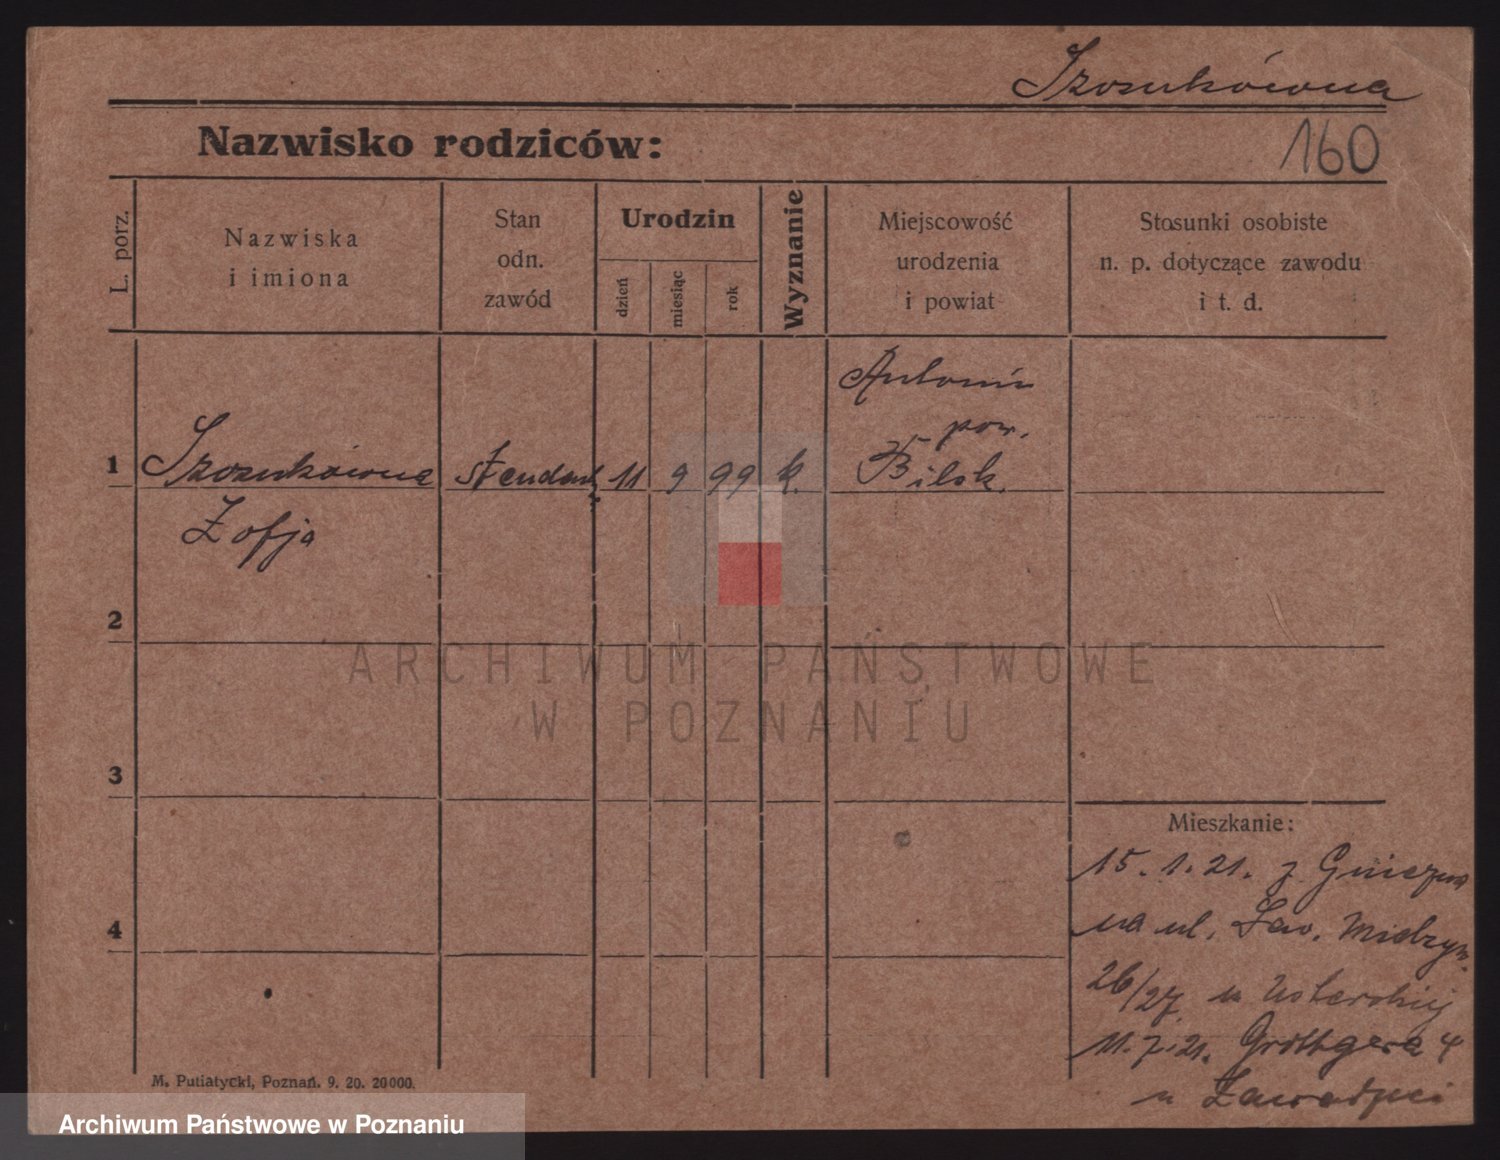 160
Nazwisko rodziców:
L. porz.
Nazwiska
i imiona
Stan
odn.
zawód
Urodzin
dzień
miesiąc
rok
Wyznanie
Miejscowość
urodzenia
i powiat
Stosunki osobiste
n. p. dotyczące zawodu
i t. d.
Antonin
pow.
1
11 9 99 k.
Zofja
2
3
4
Mieszkanie:
15. 1. 21. z Gniezna
na ul.
26/27 u
11. 7. 21. Grottgera 4
u
M. Putiatycki, Poznań. 9. 20. 20000.
ARCHIWUM PAŃSTWOWE
W POZNANIU
Archiwum Państwowe w Poznaniu